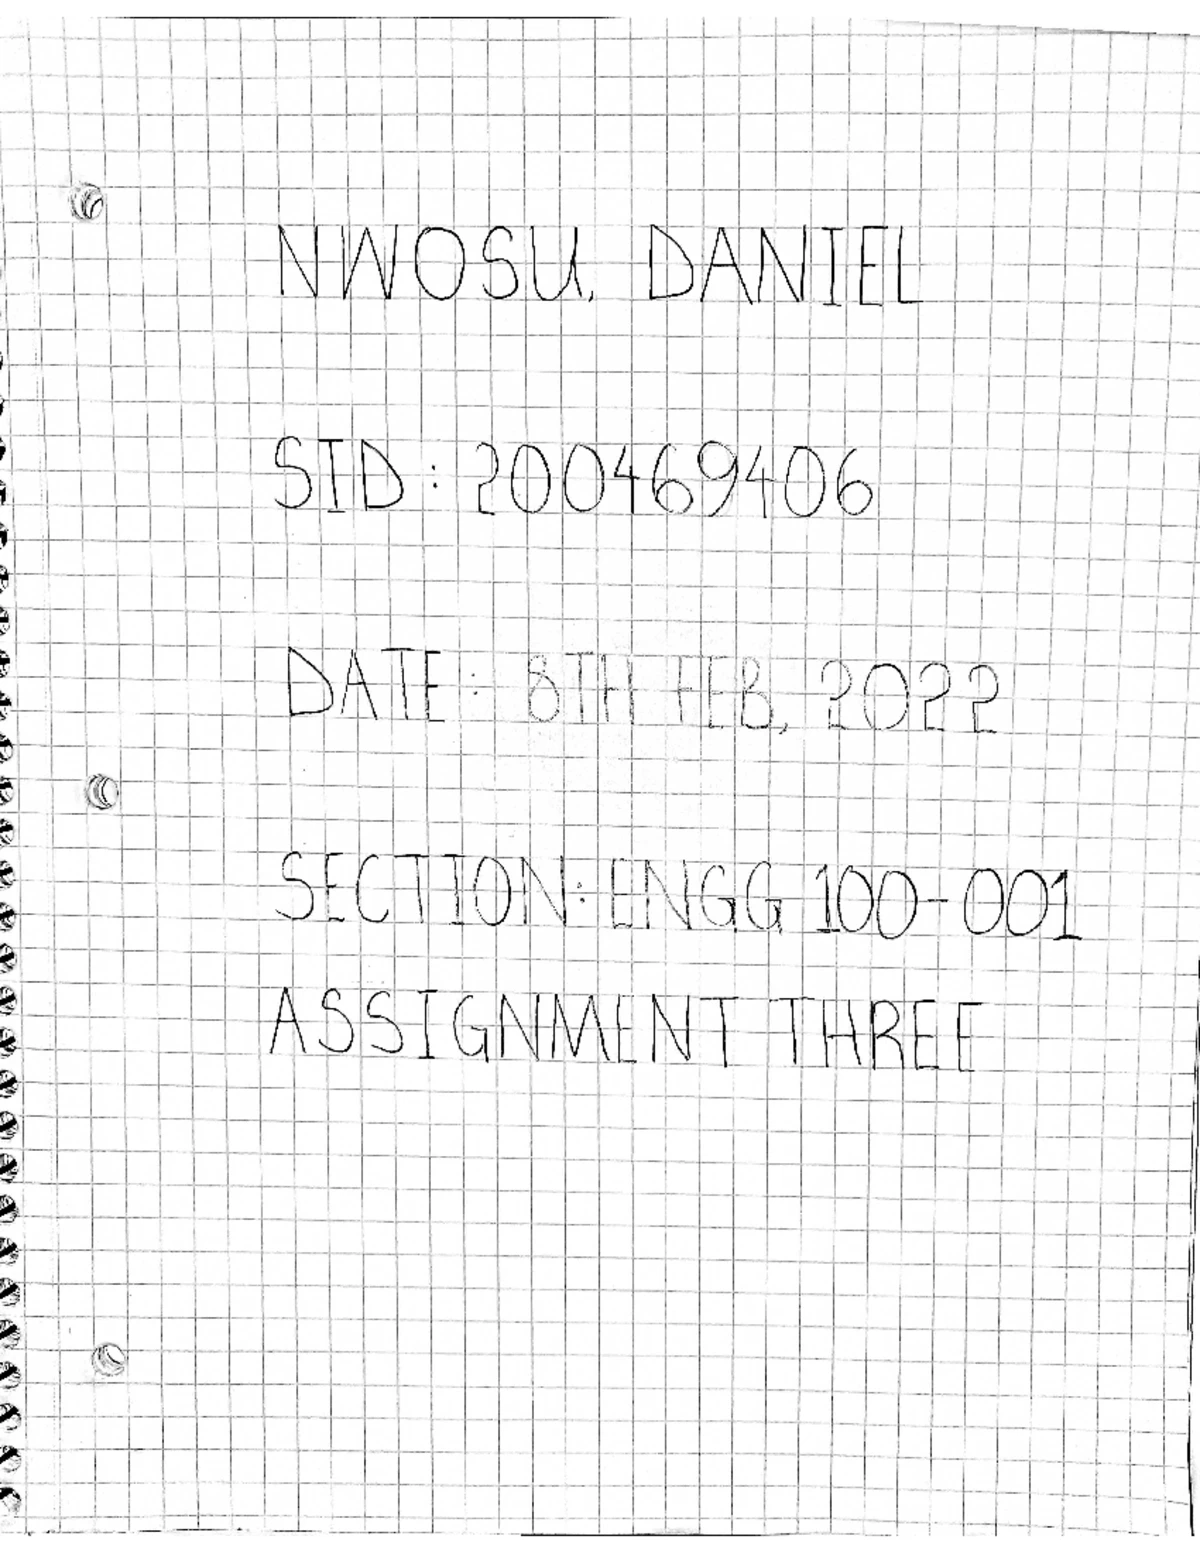 NWOSU, DANIEL
SID: 200469406
DATE: 8TH FEB, 2022
SECTION: ENGG 100-001
ASSIGNMENT THREE